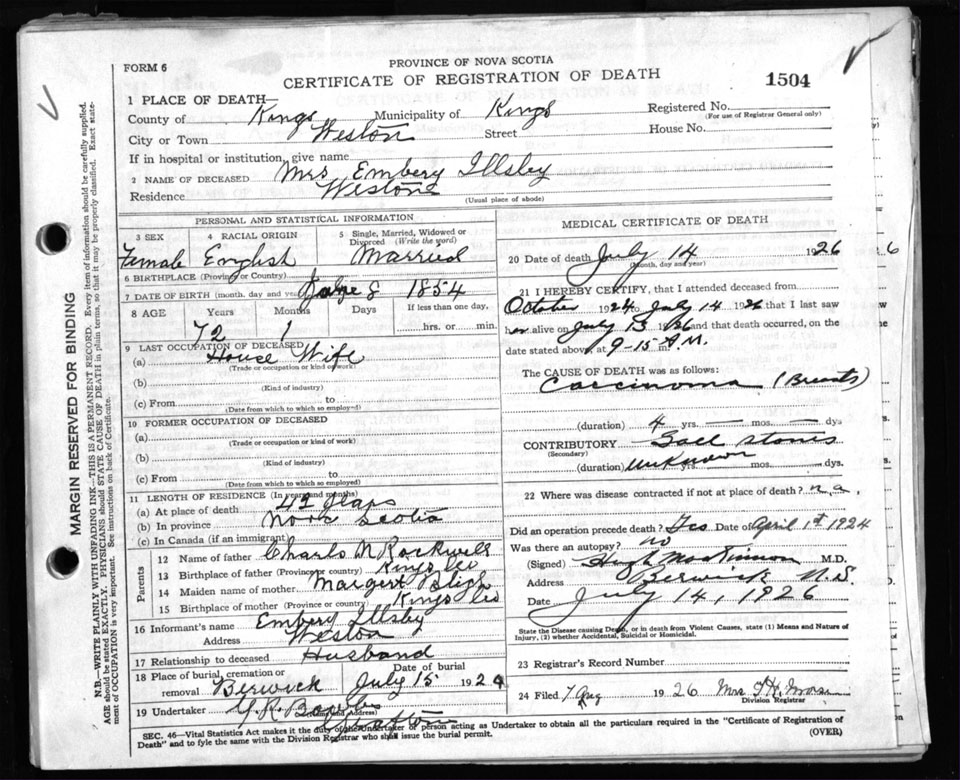 FORM 6
PROVINCE OF NOVA SCOTIA
CERTIFICATE OF REGISTRATION OF DEATH
1504
1 PLACE OF DEATH
County of Kings Municipality of Kings Registered No.
(For use of Registrar General only)
City or Town Weston Street House No.
If in hospital or institution, give name
2 NAME OF DECEASED Mrs Embery Illsley
Residence Weston
(Usual place of abode)
PERSONAL AND STATISTICAL INFORMATION
3 SEX 4 RACIAL ORIGIN 5 Single, Married, Widowed or Divorced (Write the word)
Female English Married
6 BIRTHPLACE (Province or Country)
7 DATE OF BIRTH (month, day and year) June 8 1854
8 AGE Years Months Days If less than one day,
72 1 hrs. or min.
9 LAST OCCUPATION OF DECEASED
(a) House Wife
(Trade or occupation or kind of work)
(b)
(Kind of industry)
(c) From to
(Date from which to which so employed)
10 FORMER OCCUPATION OF DECEASED
(a)
(Trade or occupation or kind of work)
(b)
(Kind of industry)
(c) From to
(Date from which to which so employed)
11 LENGTH OF RESIDENCE (In years and months)
(a) At place of death years
(b) In province Nova Scotia
(c) In Canada (if an immigrant)
Parents
12 Name of father Charls M Rockwell
13 Birthplace of father (Province or country) Kings Co
14 Maiden name of mother Margert Bligh
15 Birthplace of mother (Province or country) Kings Co
16 Informant's name Embery Illsby
Address Weston
17 Relationship to deceased Husband
18 Place of burial, cremation or removal Berwick Date of burial July 15 192
19 Undertaker
(Name and Address)
MEDICAL CERTIFICATE OF DEATH
20 Date of death July 14 1926
(Month, day and year)
6
21 I HEREBY CERTIFY, that I attended deceased from
October 1924 to July 14 1926 that I last saw
er alive on July 13 1926 and that death occurred, on the
date stated above, at 9-15 A.M.
The CAUSE OF DEATH was as follows:
Carcinoma (Breasts)
(duration) 4 yrs. — mos. — dys
CONTRIBUTORY Gall stones
(Secondary)
(duration) unknown yrs. mos. dys.
22 Where was disease contracted if not at place of death? n.a.
Did an operation precede death? Yes Date of April 1st 1924
Was there an autopsy? no
(Signed) Hugh MacKinnon M.D.
Address Berwick N.S.
Date July 14, 1926
State the Disease causing Death, or in death from Violent Causes, state (1) Means and Nature of Injury, (2) whether Accidental, Suicidal or Homicidal.
23 Registrar's Record Number
24 Filed 7 Aug 1926 Mrs
Division Registrar
SEC. 46—Vital Statistics Act makes it the duty of the Undertaker or person acting as Undertaker to obtain all the particulars required in the "Certificate of Registration of
Death" and to fyle the same with the Division Registrar who shall issue the burial permit.
(OVER)
MARGIN RESERVED FOR BINDING
N.B.—WRITE PLAINLY WITH UNFADING INK—THIS IS A PERMANENT RECORD. Every item of information should be carefully supplied.
AGE should be stated EXACTLY. PHYSICIANS should STATE CAUSE OF DEATH in plain terms, so that it may be properly classified. Exact statement of OCCUPATION is very important. See instructions on back of Certificate.